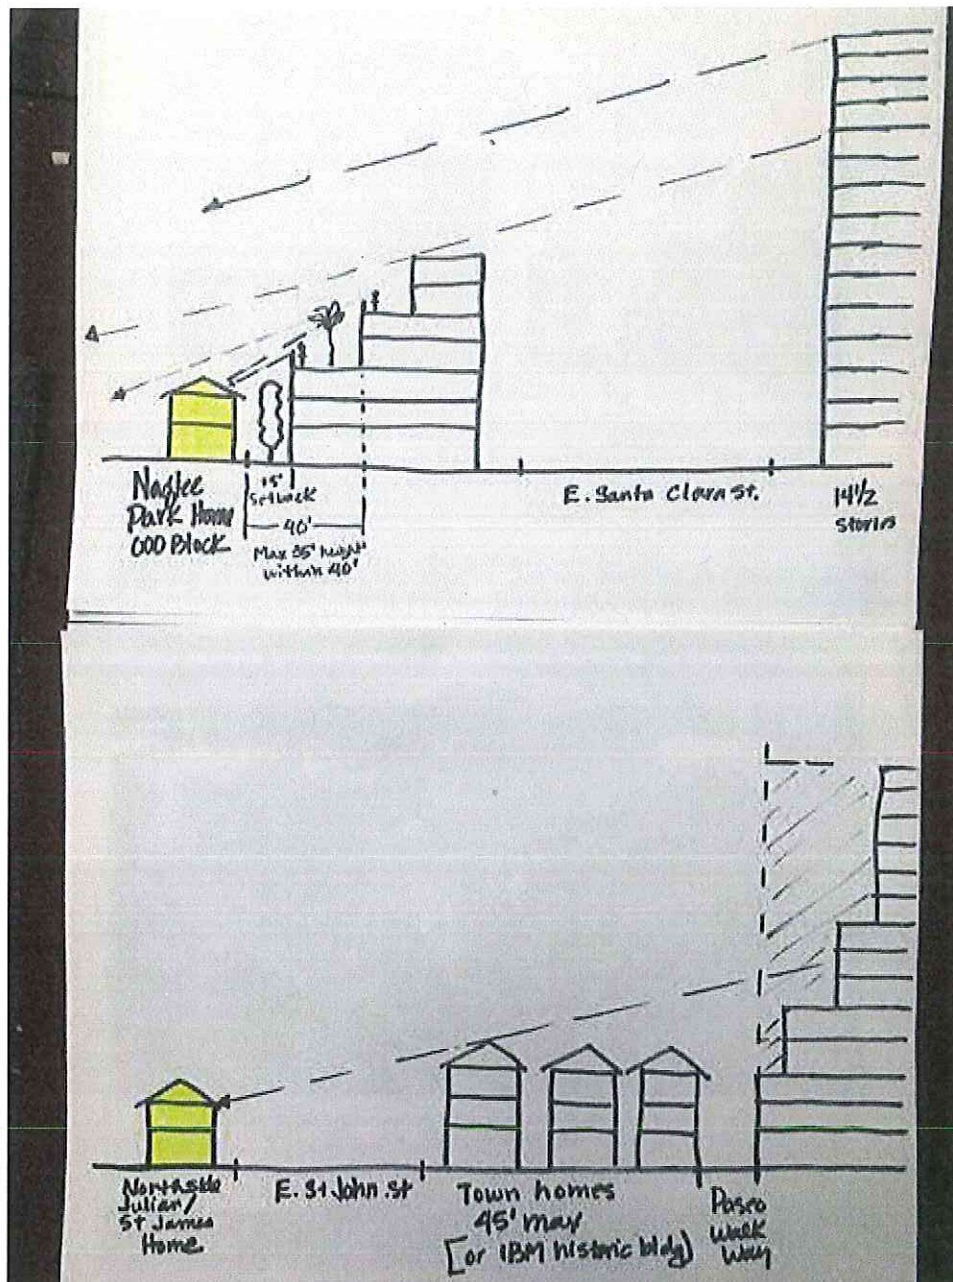 Naglee
Park Home
000 Block
15'
Setback
40'
Max 35' height
within 40'
E. Santa Clara St.
14 1/2
stories
Northside
Julian/
St James
Home
E. St John St
Town homes
45' max
[or IBM historic bldg)
Paseo
Walk
Way